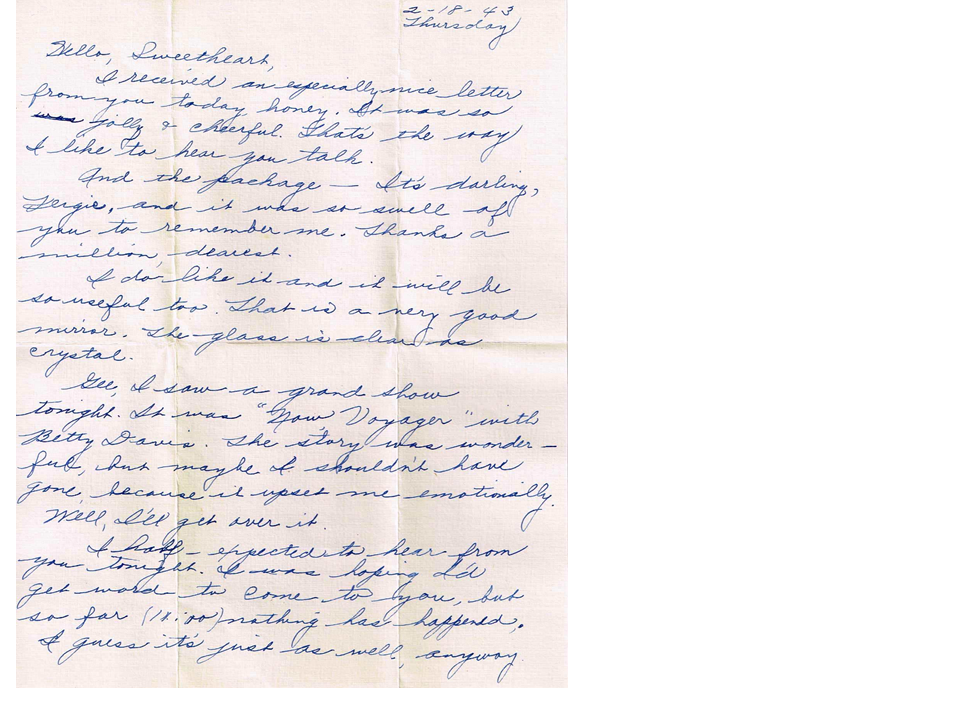 2-18-43
Thursday
Hello, Sweetheart,
I received an especially nice letter
from you today honey. It was so
was jolly & cheerful. That's the way
I like to hear you talk.
And the package — It's darling,
Fergie, and it was so swell of
you to remember me. Thanks a
million, dearest.
I do like it and it will be
so useful too. That is a very good
mirror. The glass is clear as
crystal.
Gee, I saw a grand show
tonight. It was "Now Voyager" with
Betty Davis. The story was wonder-
ful, but maybe I shouldn't have
gone, because it upset me emotionally.
Well, I'll get over it.
I half-expected to hear from
you tonight. I was hoping I'd
get word to come to you, but
so far nothing has happened.
I guess it's just as well, anyway